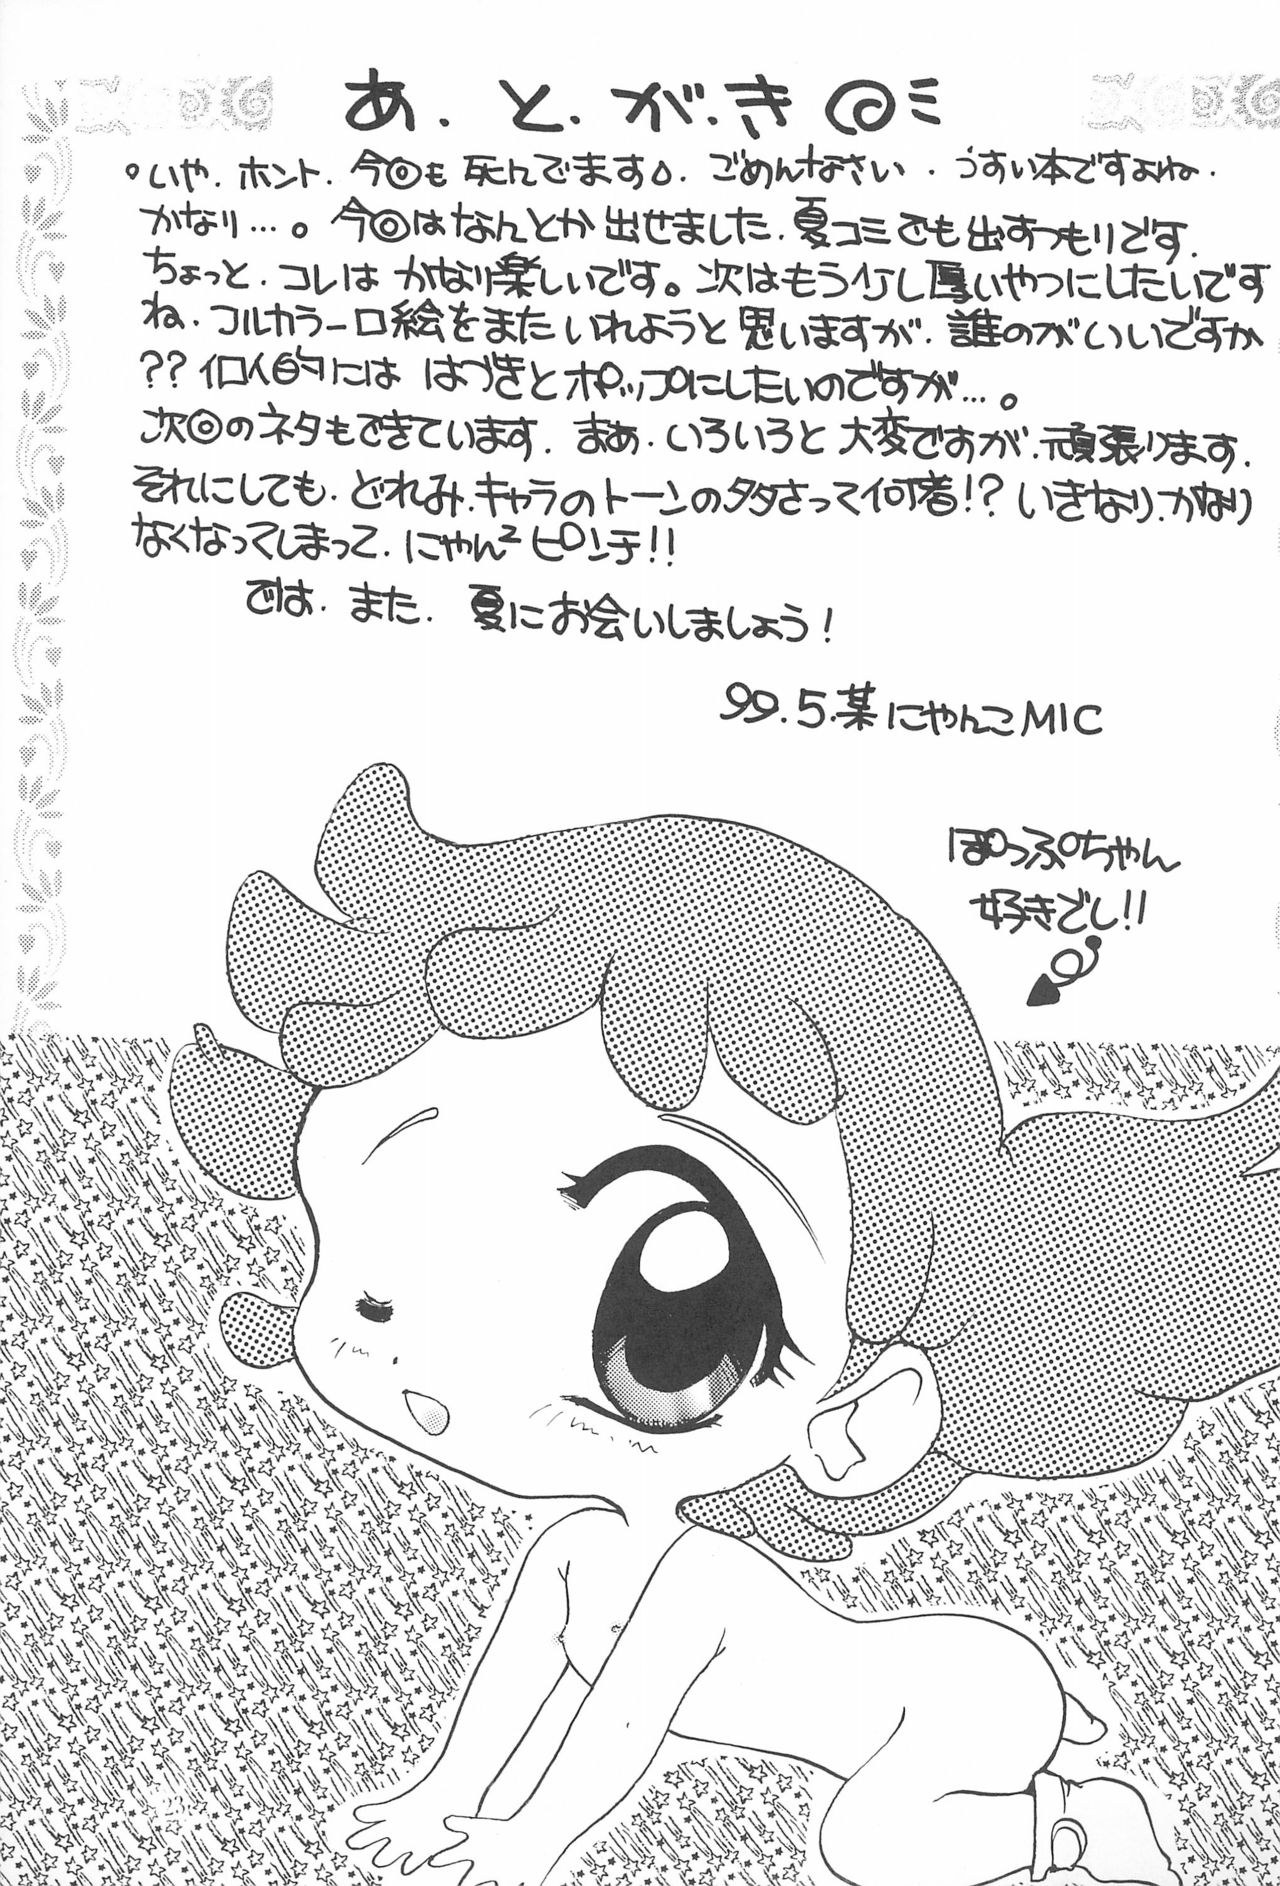 あ.と.が.き
いや.ホント.今回も死んでます.ごめんなさい.うすい本ですよね.
かなり…。今回はなんとか出せました.夏コミでも出すつもりです.
ちょっと.コレはかなり楽しいです。次はもう少し厚いやつにしたいです
ね.フルカラー口絵をまたいれようと思いますが.誰のがいいですか
??個人的にははづきとポップにしたいのですが…。
次回のネタもできています.まあ.いろいろと大変ですが.頑張ります.
それにしても.どれみ.キャラのトーンのタタさって何者!?いきなり.かなり
なくなってしまって.にゃん²ピンチ!!
では.また.夏にお会いしましょう!
99.5.某にゃんこMIC
ぽっぷちゃん
好きでし!!